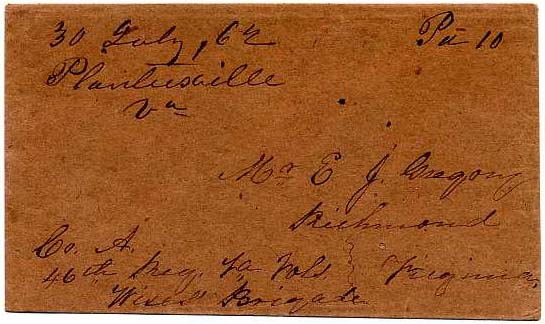 30 July, 62
Pd 10
Plantersville
Va
Mr E J. Gregory
Richmond
Virginia
Co. A.
46th Reg. Va Vols
Wises Brigade